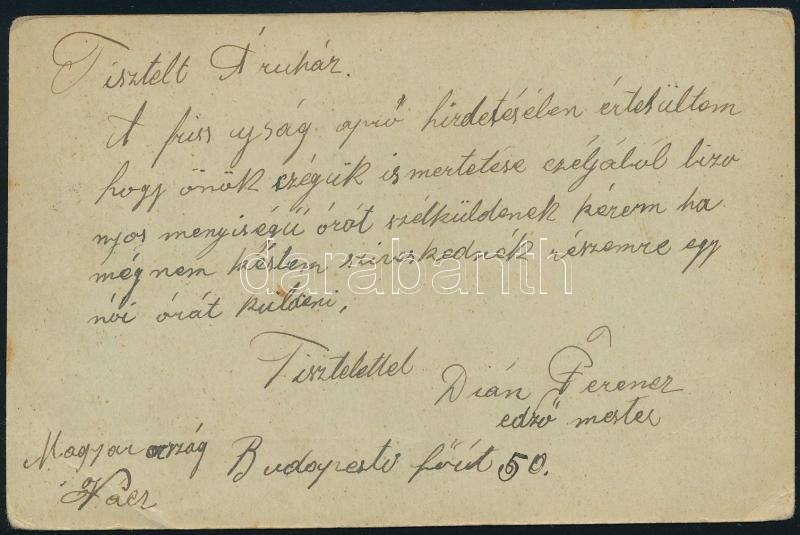 Tisztelt Áruház.
A friss ujság apró hirdetésében értesültem
hogy önök czégük ismertetése czéljából bizo
nyos menyiségű órát szélküldenek kérem ha
még nem késtem sziveskednék részemre egy
női órát küldeni.
darabanth
Tisztelettel
Dián Ferencz
edző mester
Magyarország
Budapesti főút 50.
Vácz